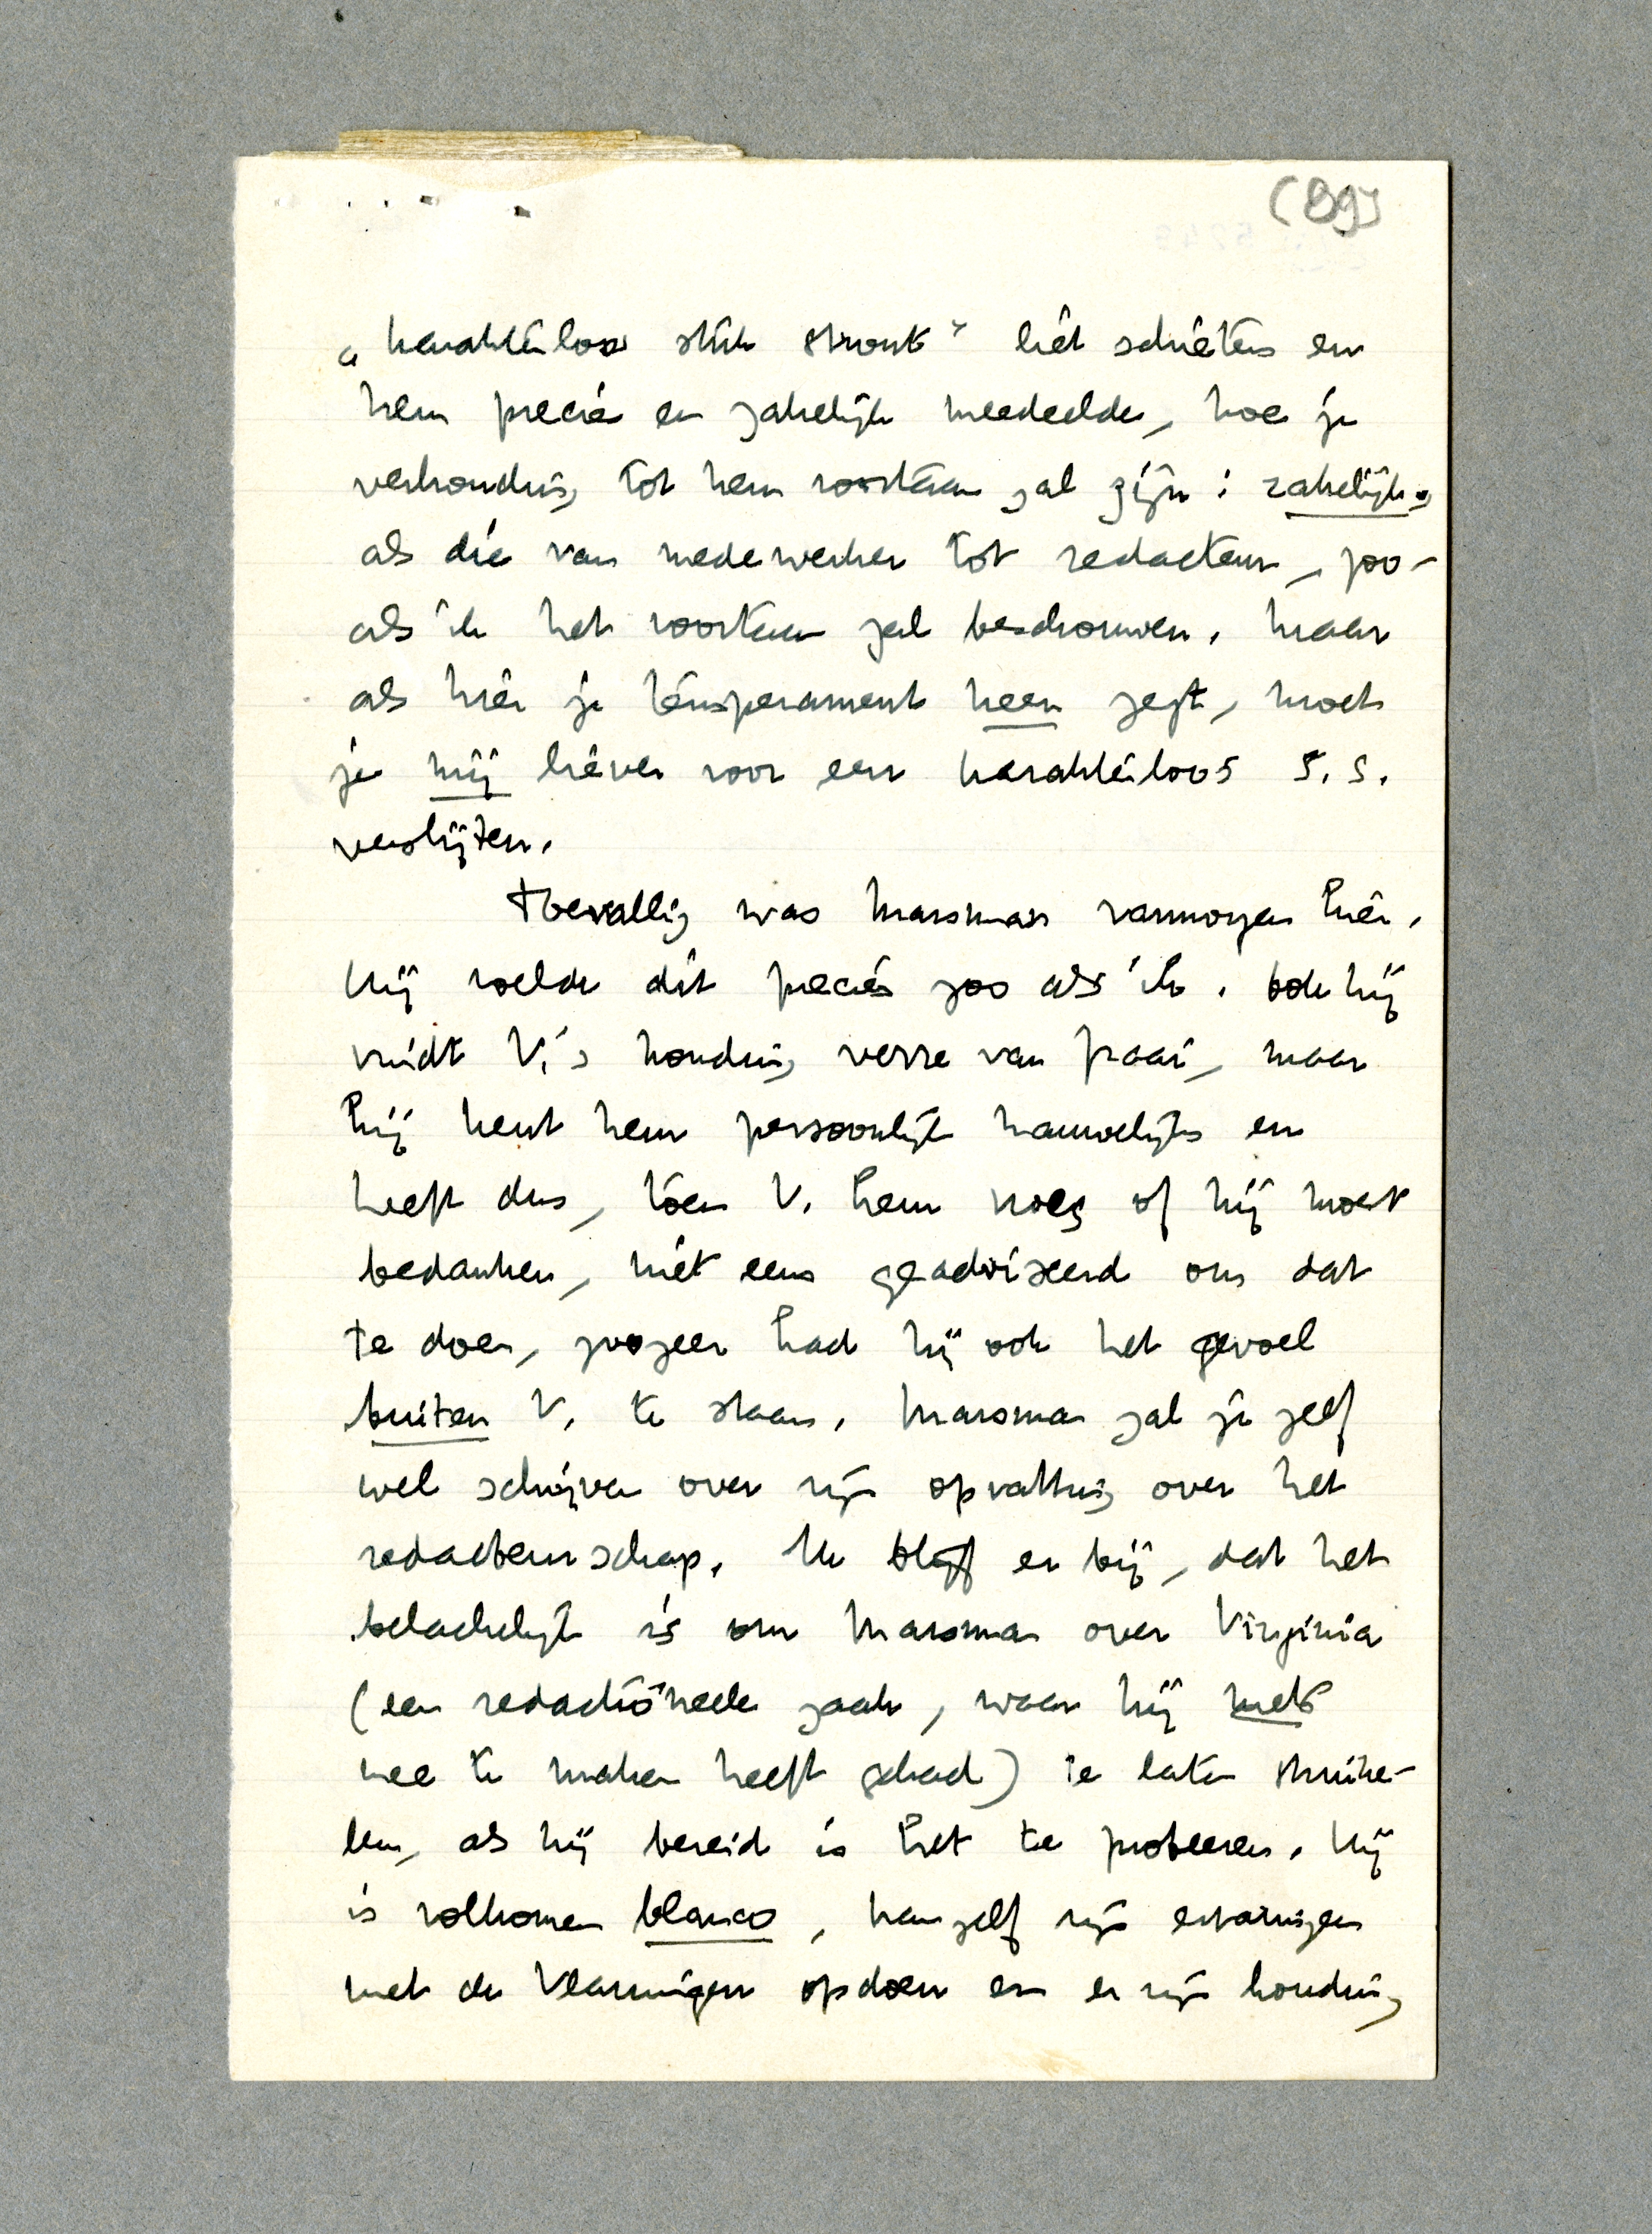 (89)
„karakterloos stuk stront" liet schieten en
hem precies en zakelijk meedeelde, hoe je
verhouding tot hem voortaan zal zijn: zakelijk,
als die van medewerker tot redacteur, zoo-
als ik het voortaan zal beschouwen. Maar
als hier je temperament neen zegt, moet
je mij liever voor een karakterloos S.S.
verslijten.
Toevallig was Marsman vanmorgen hier.
Hij voelde dit precies zoo als ik. Ook hij
vindt V.'s houding verre van fraai, maar
hij kent hem persoonlijk nauwelijks en
heeft dus, toen V. hem vroeg of hij moest
bedanken, niet eens geadviseerd om dat
te doen, zoozeer had hij ook het gevoel
buiten V. te staan. Marsman zal je zelf
wel schrijven over zijn opvatting over het
redacteurschap. Ik blijf er bij, dat het
belachelijk is om Marsman over Virginia
(een redactioneele zaak, waar hij niets
mee te maken heeft gehad) te laten struike-
len, als hij bereid is het te probeeren. Hij
is volkomen blanco, kan zelf zijn ervaringen
met de Vlamingen opdoen en er zijn houding